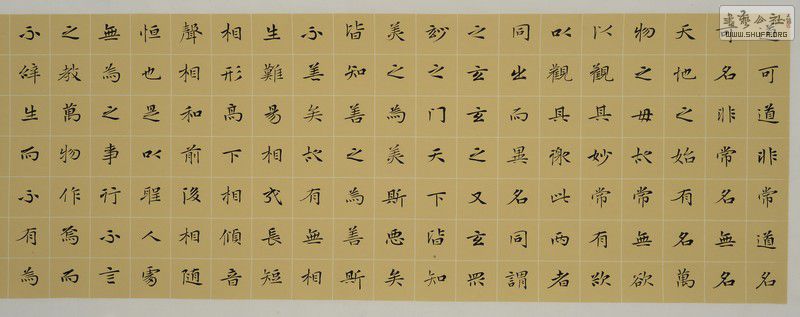 道可道非常道名
可名非常名無名
天地之始有名萬
物之母故常無欲
以觀其妙常有欲
以觀其徼此兩者
同出而異名同謂
之玄玄之又玄眾
玅之门天下皆知
美之為美斯惡矣
皆知善之為善斯
不善矣故有無相
生難易相成長短
相形高下相傾音
聲相和前後相随
恒也是以聖人處
無為之事行不言
之教萬物作焉而
不辭生而不有為
書藝公社
WWW.SHUFA.ORG